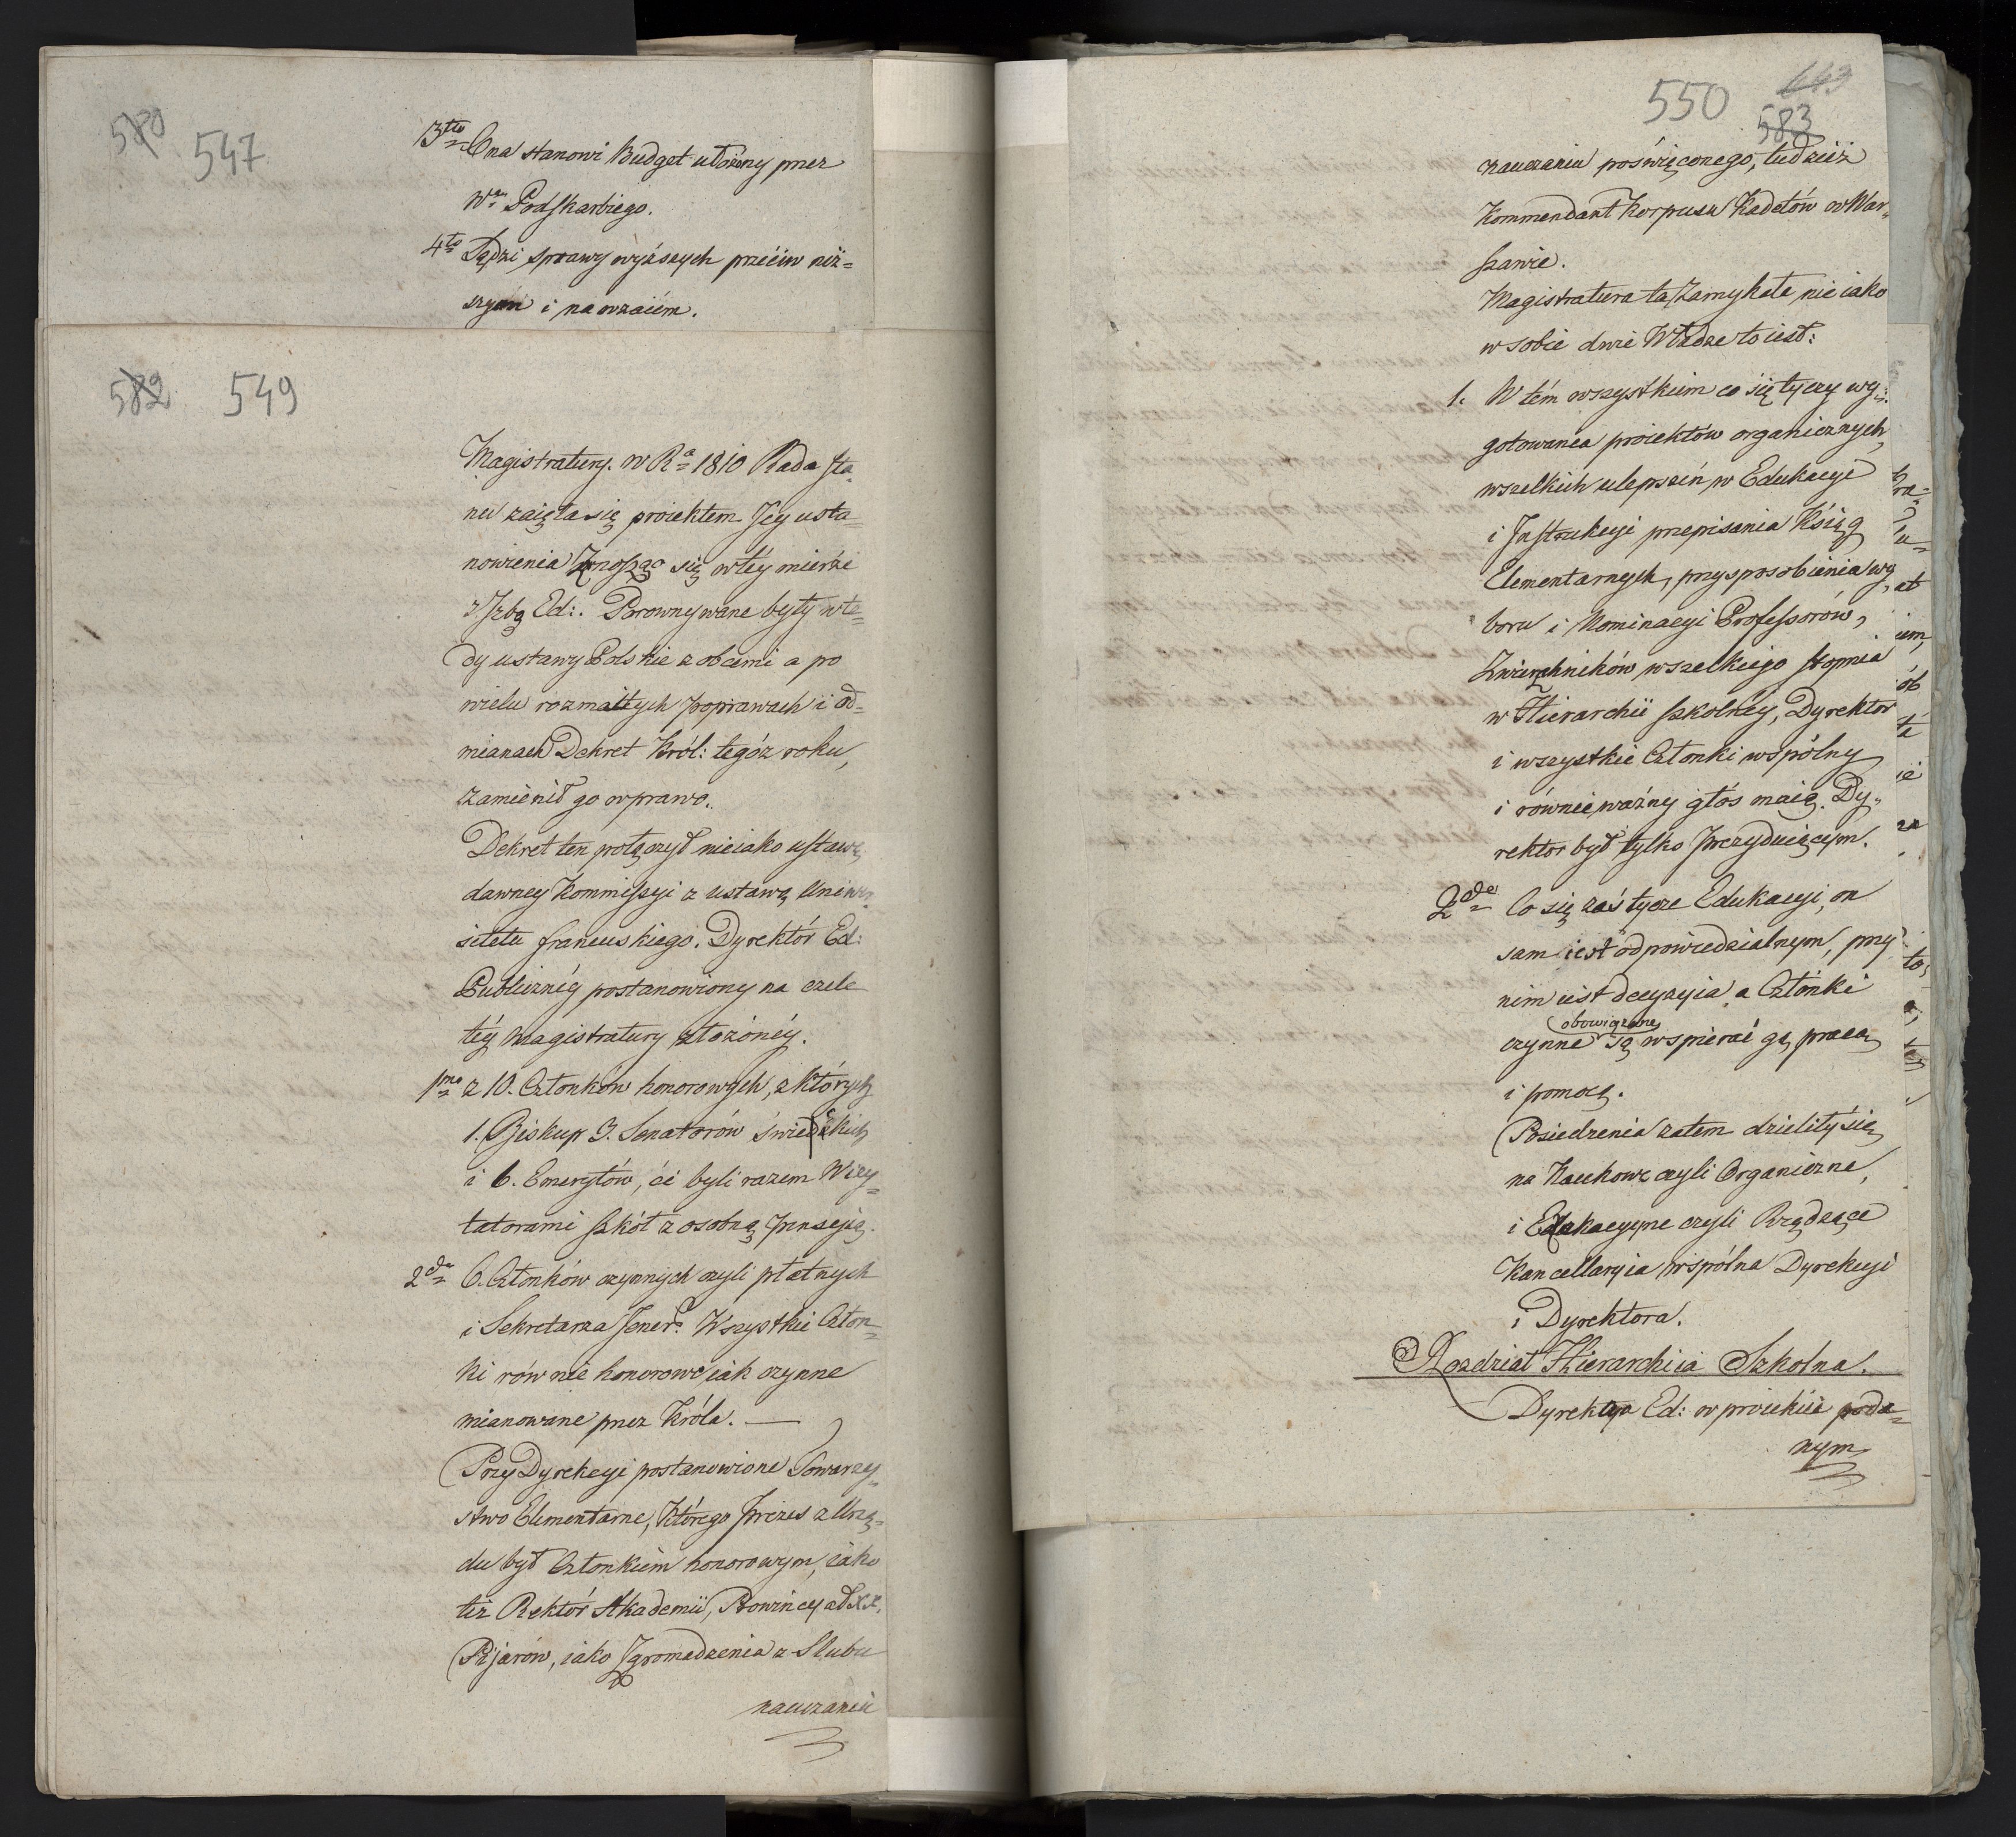 580 547
3tio Ona stanowi Budget ułożony przez
Wo Podskarbiego.
4to Sądzi sprawy wyższych przeciw niż=
szym i nawzaiem.
582 549
Magistratury. w Ra 1810 Rada sta
nu zaięła się proiektem Jey usta=
nowienia Znosząc się w téy mierze
z Izbą Ed:. Porownywane były wte=
dy ustawy Polskie z obcemi a po
wielu rozmaitych poprawach i od=
mianach Dekret Król: tegóż roku,
zamienił go w prawo.
Dekret ten połączył nieiako ustawę
dawney Kommissyi z ustawą Uniwer
sitetu francuskiego. Dyrektór Ed:
Publiznéy postanowiony na czele
téy Magistratury złożonéy.
1mo z 10. Członków honorowych, z których
1. Biskup 3. Senatorów świeckich
i 6. Emerytów, ci byli razem Wizy=
tatorami szkół z osobną pensyią.
2do 6. Członków czynnych czyli płatnych
i Sekretarza Jener: Wszystkie Człon=
ki równie honorowe iak czynne
mianowane przez Króla. —
Przy Dyrekcyi postanowione Towarzy=
stwo Elementarne, którego Prezes z Urzę=
du był Członkiem honorowym, iako
też Rektór Akademii, Prowincyał XX.
Pijarów, iako Zgromadzenia z Slubu
nauczaniu
550 643
583
nauczaniu poświęconego, tudzież
Kommendant Korpusu Kadetów w War=
szawie.
Magistratura ta Zamykała nieiako
w sobie dwie Władze to iest:
1. W tém wszystkiem co się tyczy wy=
gotowania proiektów organicznych,
wszelkich ulepszeń w Edukacyi
i Instrukcyi przepisania Książ
Elementarnych, przysposobienia wy
boru i Nominacyi Professorów,
Zwierzchników wszelkiego stopnia
w Hierarchii szkolnéy, Dyrektor
i wszystkie Członki wspólny
i równie ważny głós maią. Dy=
rektor był tylko Prezyduiącym.
2do Co się zaś tycze Edukacyi, on
sam iest odpowiedzialnym, przy
nim iest decyzyia a Członki
obowiązane
czynne są wspierać go, pracą
i pomocą.
Posiedzenia zatem dzieliły się
na Naukowe czyli Organiczne,
i Edukacyyne czyli Rządzące
Kancellaryia wspólna Dyrekcyi
i Dyrektora.
Rozdział Hierarchiia Szkolna.
Dyrekcya Ed: w proiekcie poda=
nym